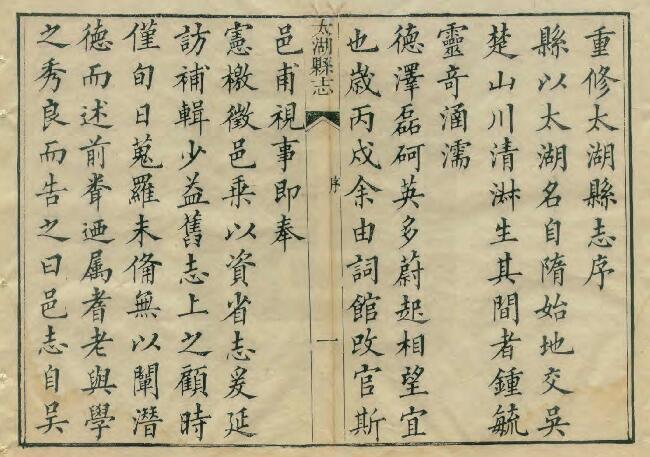 重修太湖縣志序
縣以太湖名自隋始地交吳
楚山川清淋生其間者鍾毓
靈奇涵濡
德澤磊砢英多蔚起相望宜
也歲丙戌余由詞館改官斯
太湖縣志
序
一
邑甫視事即奉
憲檄徵邑乘以資省志爰延
訪補輯少益舊志上之顧時
僅旬日蒐羅未僃無以闡潛
德而述前輩迺属耆老與學
之秀良而告之曰邑志自吳